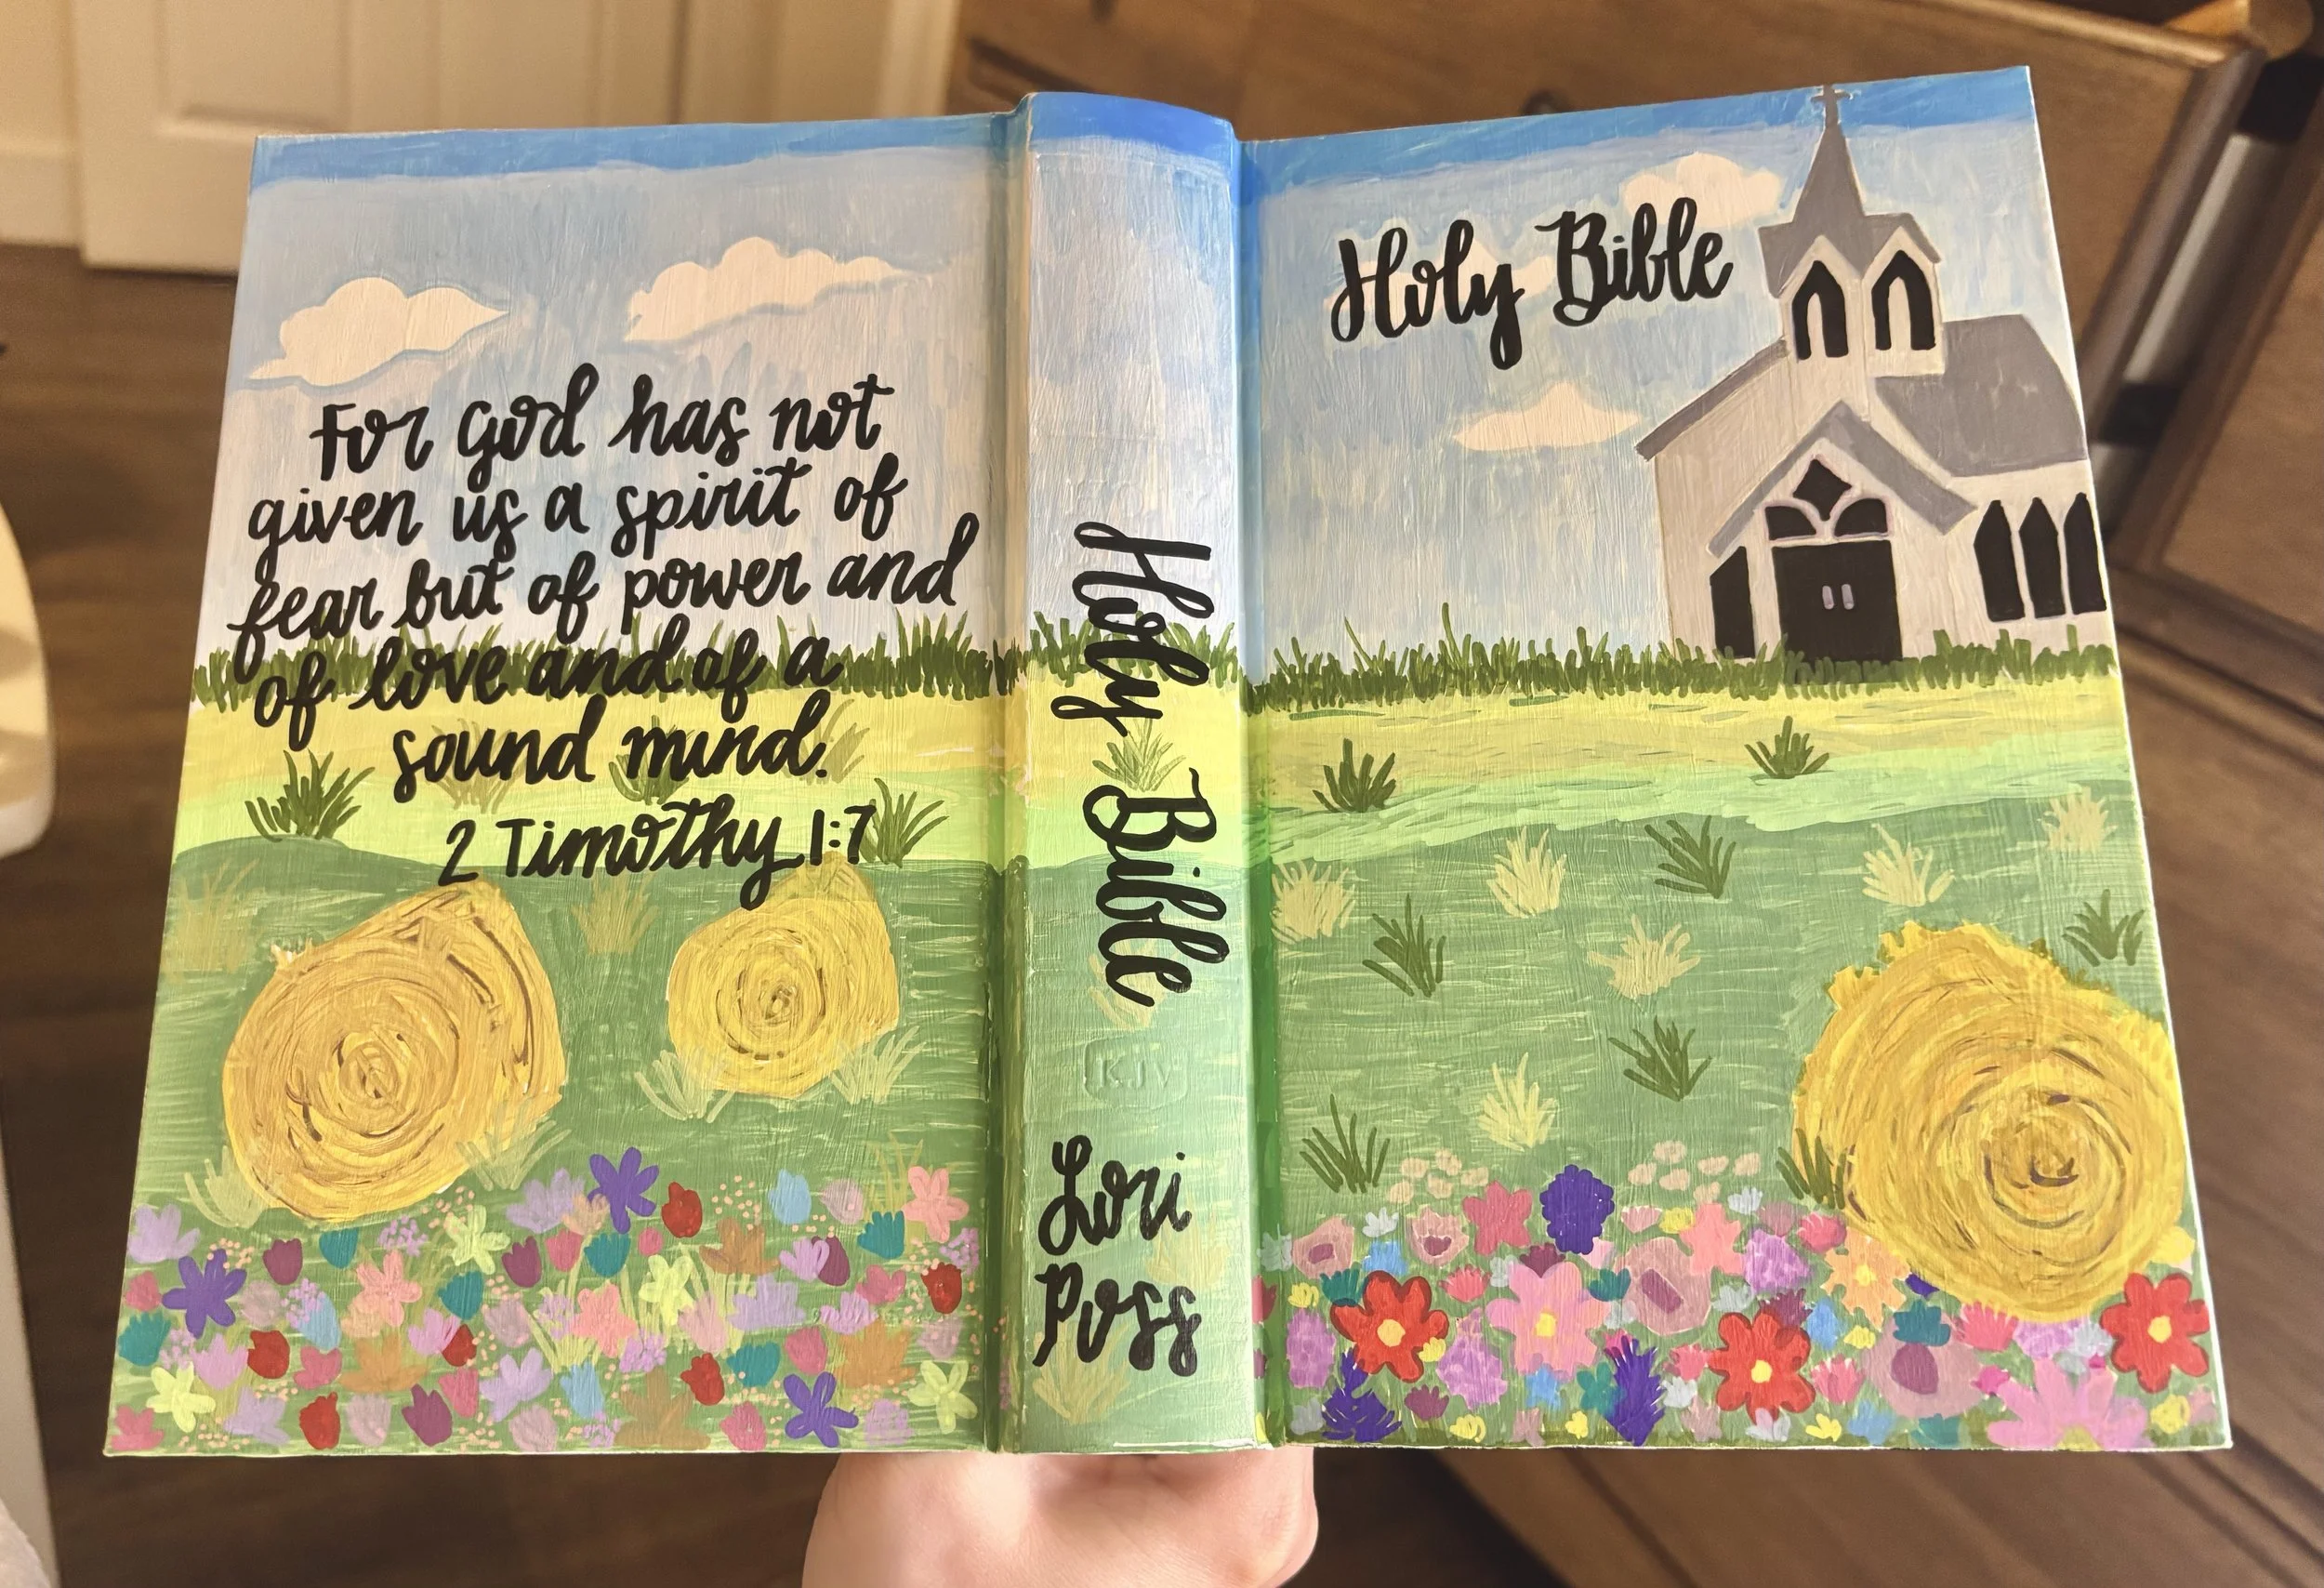 For God has not
given us a spirit of
fear but of power and
of love and of a
sound mind.
2 Timothy 1:7
Holy Bible
KJV
Lori
Poss
Holy Bible